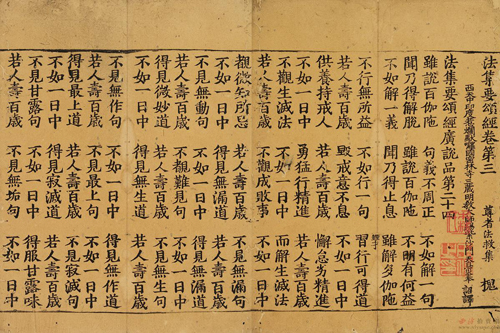 法集要頌經卷第三 尊者法救集
法集要頌經廣說品第二十四
雖說百伽陁 句義不周正 不如解一句
聞乃得解脫 雖說百伽陁 不明有何益
不如解一義 聞乃得止息 雖解多伽陁
不行無所益 不如行一句 習行可得道
若人壽百歲 毀戒意不息 不如一日中
供養持戒人 若人壽百歲 懈怠劣精進
不如一日中 勇猛行精進 若人壽百歲
不觀生滅法 不如一日中 而解生滅法
若人壽百歲 不觀成敗事 不如一日中
觀微知所忌 若人壽百歲
不見無動句 不如一日中 得見無動道
若人壽百歲 不觀難見句 不如一日中
得見微妙道 若人壽百歲 不見無生句
不如一日中 得見無生道 若人壽百歲
不見無作句 不如一日中 得見無作道
若人壽百歲 不見最上句 不如一日中
得見最上道 若人壽百歲 不見寂滅句
不如一日中 得見寂滅道 若人壽百歲
不見甘露句 不如一日中 得服甘露味
若人壽百歲 不見無垢句 不如一日中